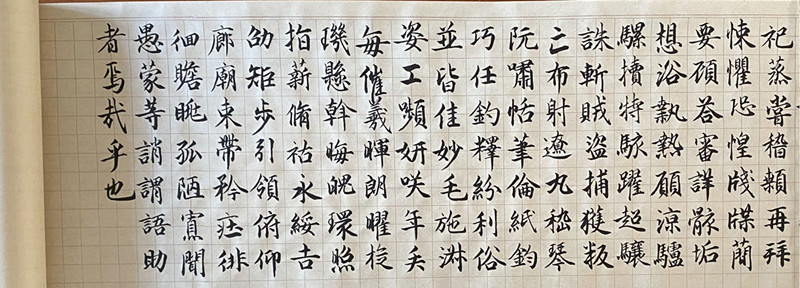 祀蒸嘗稽顙再拜
悚懼恐惶牋牒簡
要顧答審詳骸垢
想浴執熱願涼驢
騾犢特駭躍超驤
誅斬賊盜捕獲叛
亡布射遼丸嵇琴
阮嘯恬筆倫紙鈞
巧任釣釋紛利俗
並皆佳妙毛施淑
姿工嚬妍咲年矢
每催羲暉朗曜旋
璣懸斡晦魄環照
指薪脩祜永綏吉
劭矩步引領俯仰
廊廟束帶矜庄徘
徊瞻眺孤陋寡聞
愚蒙等誚謂語助
者焉哉乎也